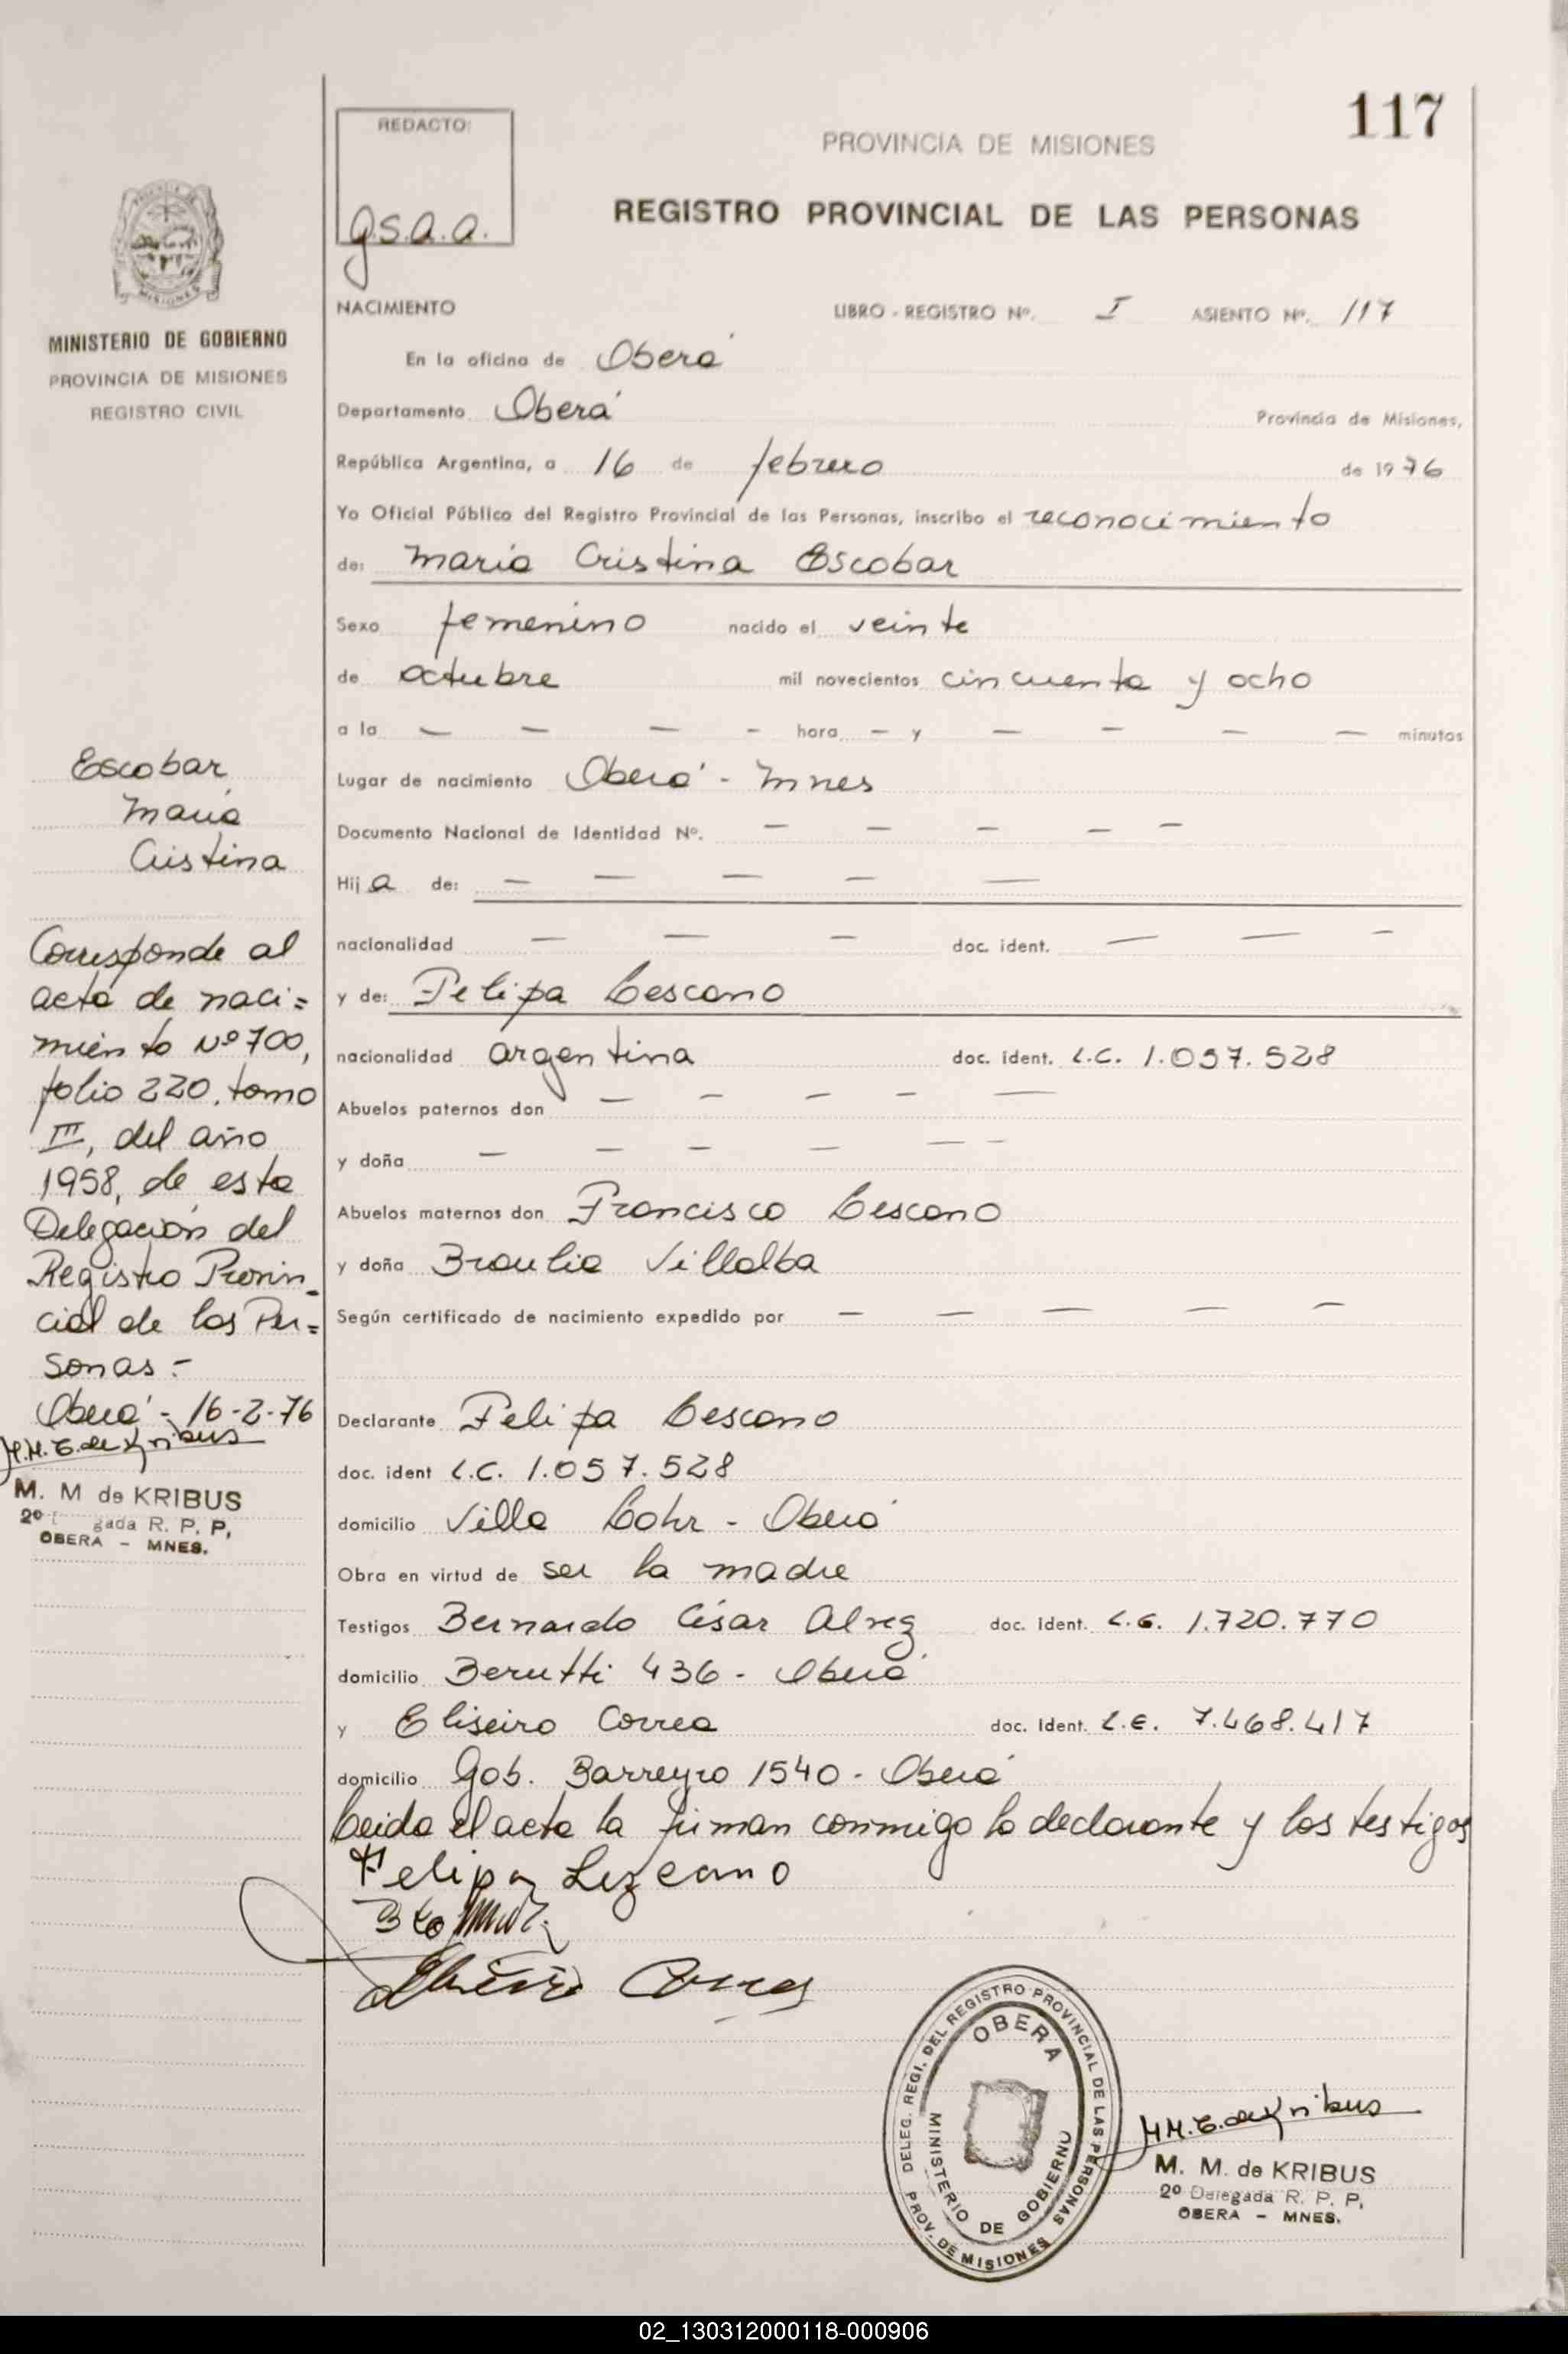 117
REDACTO:
g.s.a.a.
PROVINCIA DE MISIONES
REGISTRO PROVINCIAL DE LAS PERSONAS
MINISTERIO DE GOBIERNO
PROVINCIA DE MISIONES
REGISTRO CIVIL
NACIMIENTO LIBRO - REGISTRO Nº. I ASIENTO Nº. 117
En la oficina de Oberá
Departamento Oberá Provincia de Misiones,
República Argentina, a 16 de febrero de 1976
Yo Oficial Público del Registro Provincial de las Personas, inscribo el reconocimiento
de: María Cristina Escobar
Sexo femenino nacido el veinte
de octubre mil novecientos cincuenta y ocho
a la — — — - hora - y — — — — minutos
Lugar de nacimiento Oberá - Mnes
Documento Nacional de Identidad Nº. — — — — —
Hija de: — — — — —
nacionalidad — — — doc. ident. — — -
y de: Felipa Lescano
nacionalidad argentina doc. ident. L.C. 1.057.528
Abuelos paternos don — — — — —
y doña — — — — — -
Abuelos maternos don Francisco Lescano
y doña Braulia Villalba
Según certificado de nacimiento expedido por — — — — —
Declarante Felipa Lescano
doc. ident L.C. 1.057.528
domicilio Villa Lohr - Oberá
Obra en virtud de ser la madre
Testigos Bernardo César Alvez doc. ident. L.E. 1.720.770
domicilio Berutti 436 - Oberá
y Eliseiro Correa doc. Ident. L.E. 7.468.417
domicilio Gob. Barreyro 1540 - Oberá
Leida el acta la firman conmigo la declarante y los testigos
Felipa Lezcano
Escobar
María
Cristina
Corresponde al
acta de naci=
miento Nº 700,
folio 220, tomo
III, del año
1958, de esta
Delegación del
Registro Provin_
cial de las Per=
sonas -
Oberá - 16-2-76
M.M.E. de Kribus
M. M de KRIBUS
2º gada R. P. P,
OBERA - MNES.
DELEG. REGI. DEL REGISTRO PROVINCIAL DE LAS PERSONAS
OBERA
MINISTERIO DE GOBIERNO
PROV. DE MISIONES
M.M.E. de Kribus
M. M. de KRIBUS
2º Delegada R. P. P,
OBERA - MNES.
02_130312000118-000906